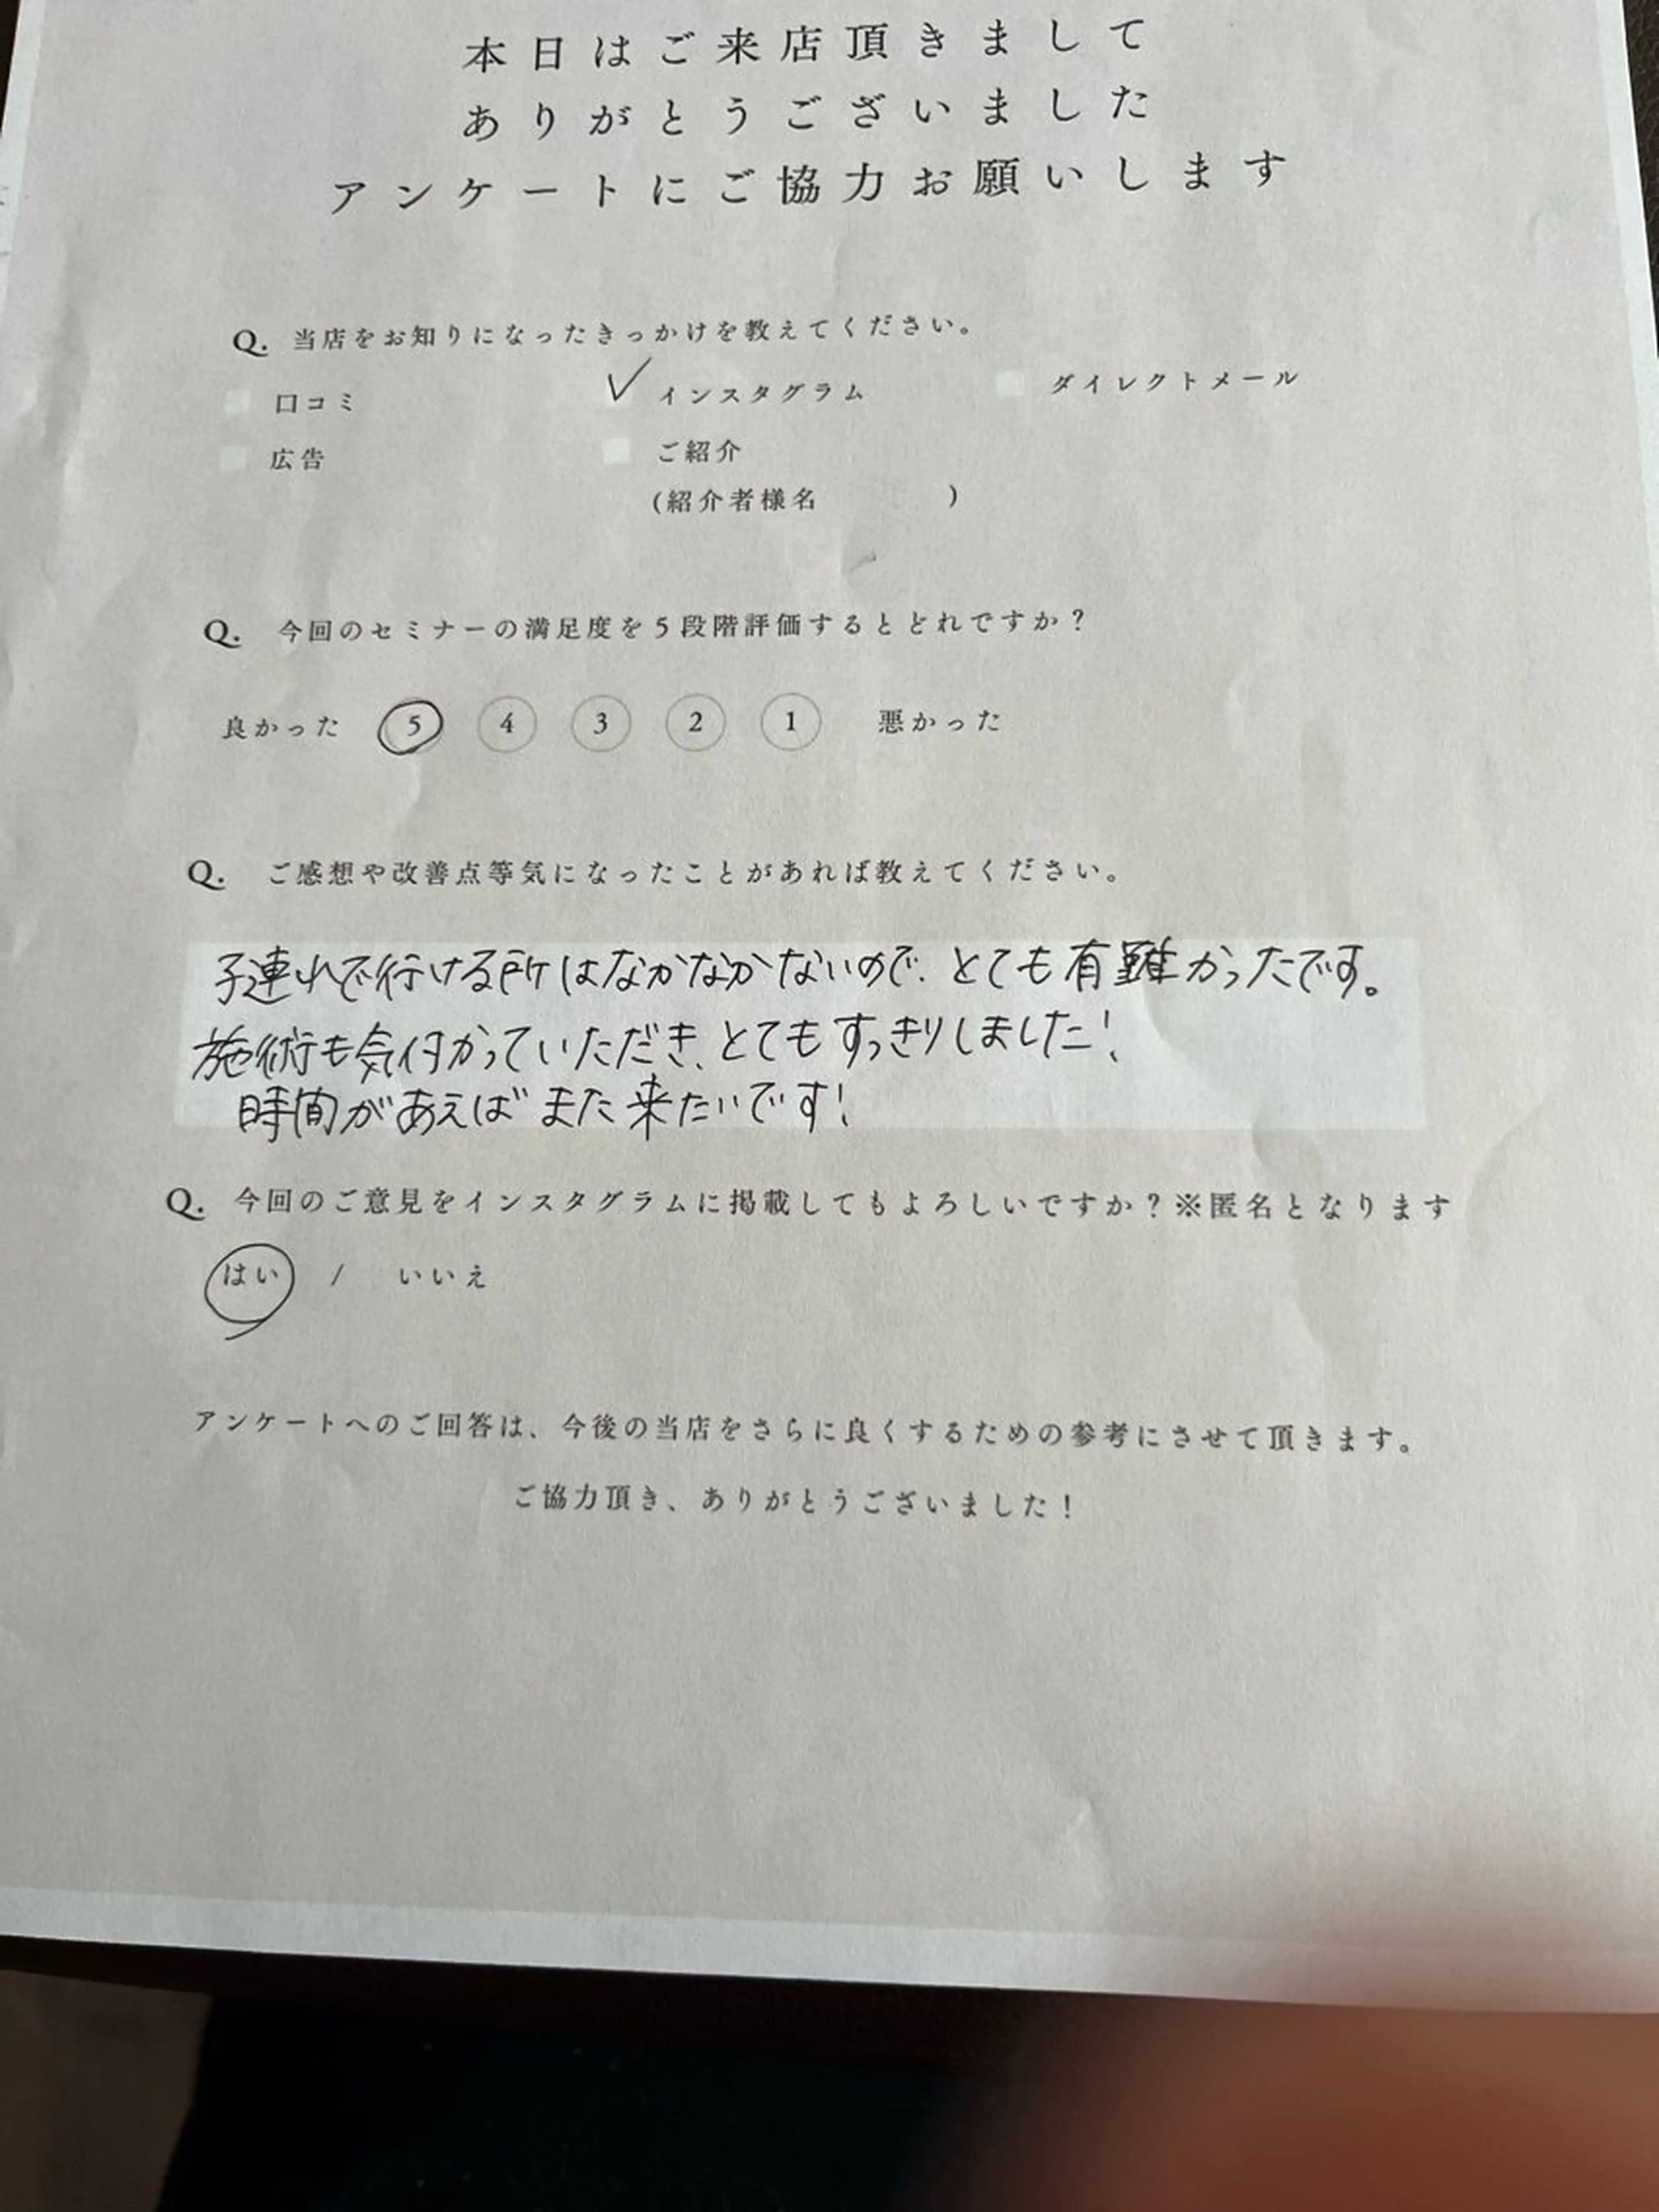 本日はご来店頂きまして
ありがとうございました
アンケートにご協力お願いします
Q. 当店をお知りになったきっかけを教えてください。
口コミ ✓ インスタグラム ダイレクトメール
広告 ご紹介
(紹介者様名 )
Q. 今回のセミナーの満足度を5段階評価するとどれですか?
良かった 5 4 3 2 1 悪かった
Q. ご感想や改善点等気になったことがあれば教えてください。
子連れで行ける所はなかなかないので、とても有難かったです。
施術も気付かっていただき、とてもすっきりしました!
時間があえばまた来たいです!
Q. 今回のご意見をインスタグラムに掲載してもよろしいですか?※匿名となります
はい / いいえ
アンケートへのご回答は、今後の当店をさらに良くするための参考にさせて頂きます。
ご協力頂き、ありがとうございました!